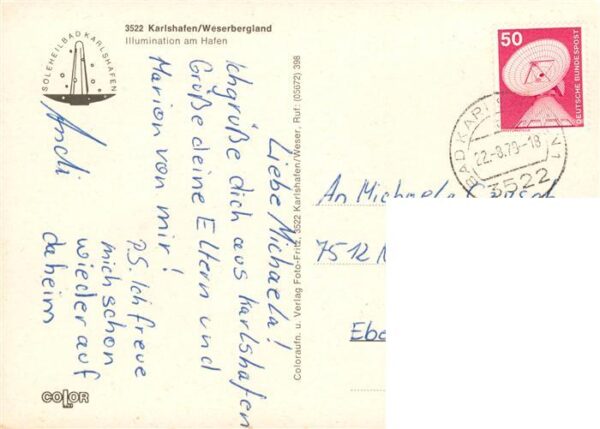 3522 Karlshafen/Weserbergland
Illumination am Hafen
SOLEHEILBAD KARLSHAFEN
Liebe Michaela!
Ich grüße dich aus Karlshafen
Grüße deine Eltern und
Marion von mir!
Andi
P.S. Ich freue
mich schon
wieder auf
daheim
COLOR
Coloraufn. u. Verlag Foto-Fritz, 3522 Karlshafen/Weser, Ruf: (05672) 398
50
DEUTSCHE BUNDESPOST
BAD KARL
22-8.79-18
3522
An Michaela
7512
Ebe